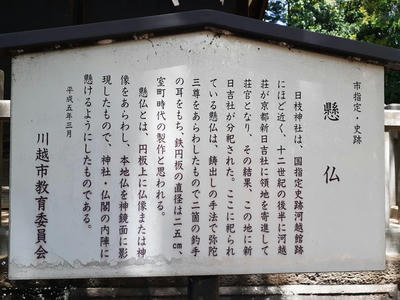 市指定・史跡
懸仏
日枝神社は、国指定史跡河越館跡
にほど近く、十二世紀の後半に河越
荘が京都新日吉社に領地を寄進して
荘官となり、その結果、この地に新
日吉社が分祀された。ここに祀られ
ている懸仏は、鋳出しの手法で弥陀
三尊をあらわしたもので二箇の釣手
の耳をもち、鉄円板の直径は二五㎝、
室町時代の製作と思われる。
懸仏とは、円板上に仏像または神
像をあらわし、本地仏を神鏡面に影
現したもので、神社・仏閣の内陣に
懸けるようにしたものである。
平成五年三月
川越市教育委員会